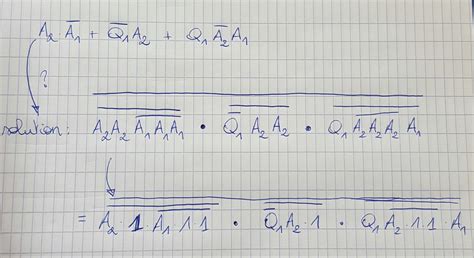 A₂ · A̅₁ + Q̅₁A₂ + Q₁ A̅₂ A₁
?
solution: \overline{\overline{A₂A₂ \overline{A₁A₁A₁}} · \overline{Q̅₁ A₂A₂} · \overline{Q₁ \overline{A₂A₂A₂} A₁}}
= \overline{\overline{A₂·1·\overline{A₁·1·1}} · \overline{Q̅₁A₂·1} · \overline{Q₁\overline{A₂·1·1}·A₁}}